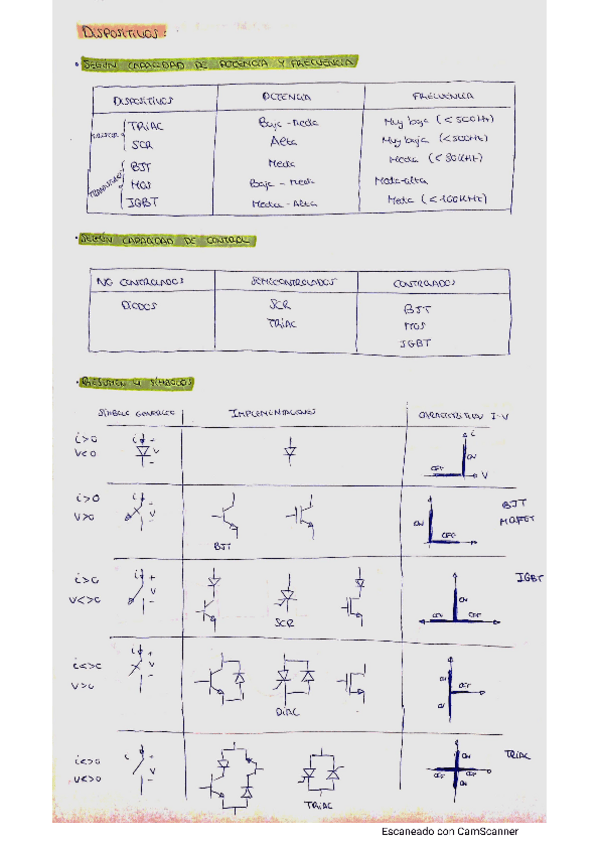 DISPOSITIVOS:
• SEGÚN CAPACIDAD DE POTENCIA Y FRECUENCIA
DISPOSITIVOS POTENCIA FRECUENCIA
TRIAC Baja-Media Muy baja (<500Hz)
SCR Alta Muy baja (<500Hz)
BJT Media Media (<80KHz)
MOS Baja-Media Media-alta
IGBT Media-Alta Media (<100KHz)
• SEGÚN CAPACIDAD DE CONTROL
NO CONTROLADOS SEMICONTROLADOS CONTROLADOS
DIODOS SCR BJT
TRIAC MOS
IGBT
• RESUMEN Y SÍMBOLOS
SÍMBOLO GENÉRICO IMPLEMENTACIONES CARACTERÍSTICA I-V
i>0 i + V - i ON OFF V
V<0
i>0 i + V - ON OFF BJT
V>0 MOSFET
BJT
i>0 i + V - ON OFF OFF IGBT
V<>0
SCR
i<>0 i + V - ON OFF ON
V>0
DIAC
i<>0 i + V - ON OFF OFF ON TRIAC
V<>0
TRIAC
Escaneado con CamScanner